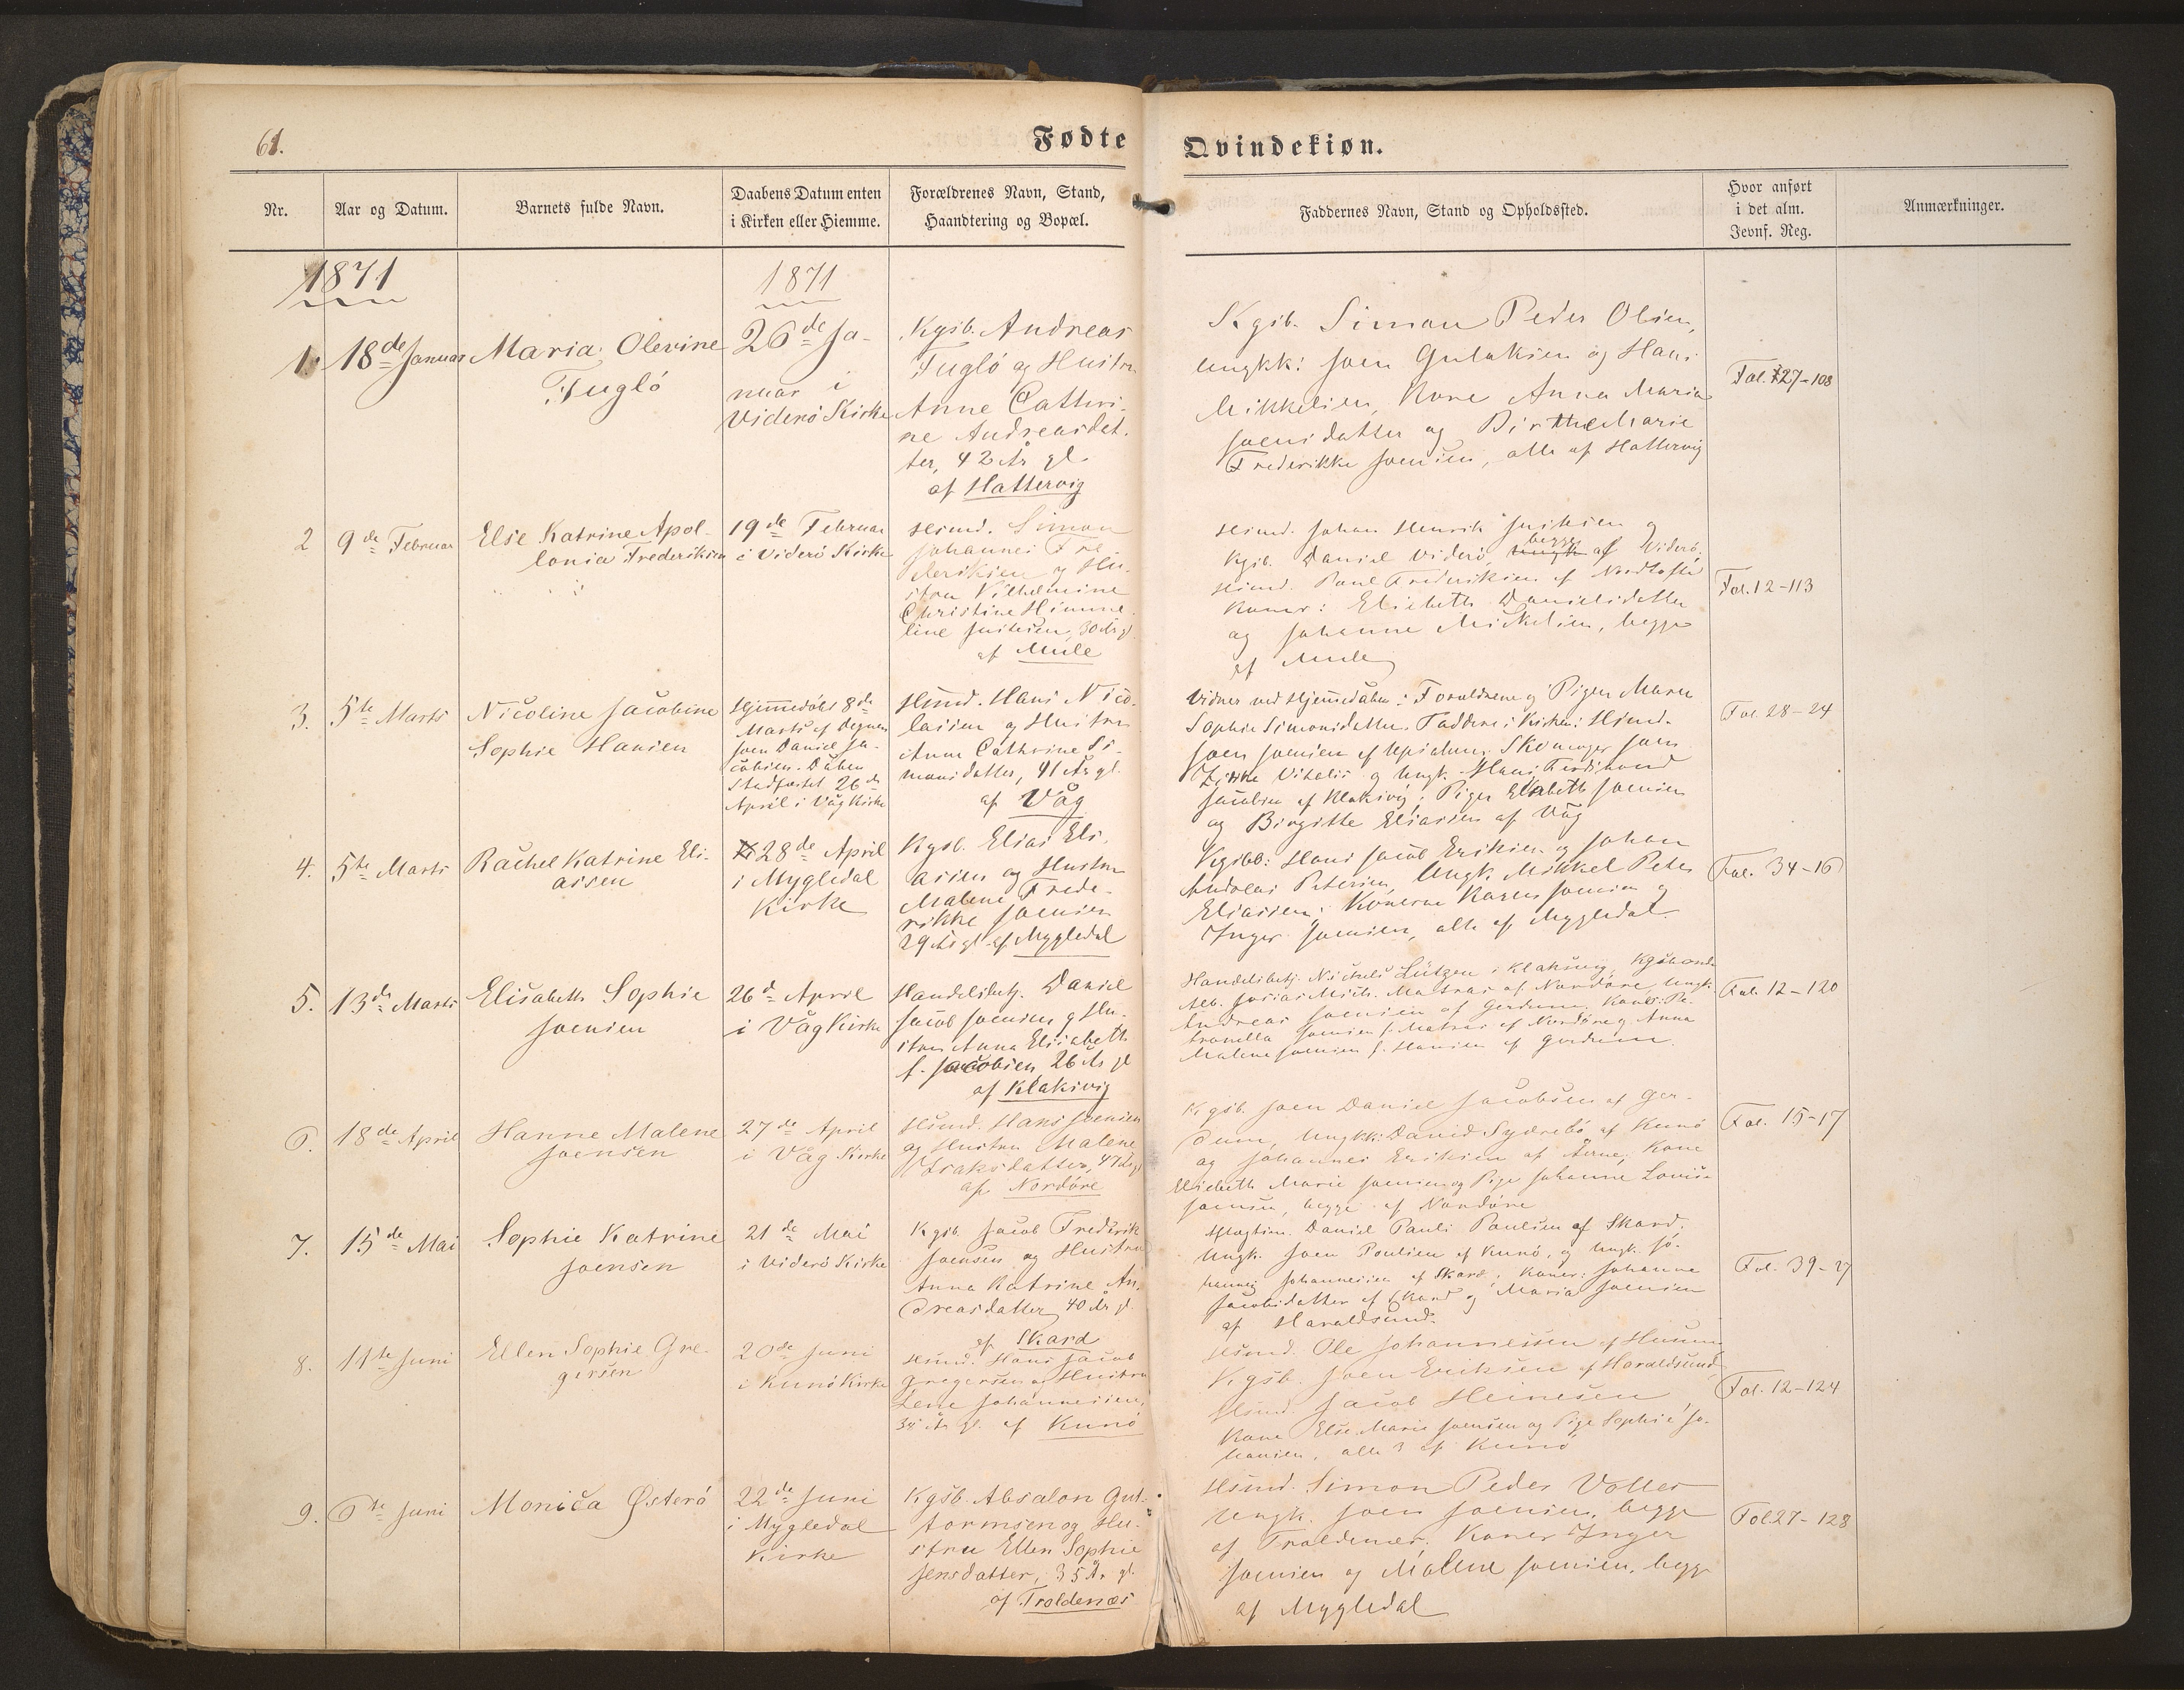 61.
Fødte
Qvindekiøn.
Nr.
Aar og Datum.
Barnets fulde Navn.
Daabens Datum enten
i Kirken eller Hiemme.
Forældrenes Navn, Stand,
Haandtering og Bopæl.
Faddernes Navn, Stand og Opholdssted.
Hvor anført
i det alm.
Jevnf. Reg.
Anmærkninger.
1871
1871
1.
18de Januar
Maria Olevine
Fugló
26de Ja-
nuar i
Viderö Kirke
Kgsb. Andreas
Fugló og Hustru
Anne Cathri-
ne Andreasdat-
ter, 42 År gl.
af Hattervig
Kgsb. Simon Peder Olsen,
Ungkk: Joen Guttormsen og Hans
Mikkelsen, Kone Anna Maria
Joensdatter og Birthe Marie
Frederikke Joensen, alle af Hattervig
Fol. 27-108
2
9de Februar
Else Katrine Apol-
lonia Frederiksen
19de Februar
i Viderö Kirke
Hsmd. Simon
Johannes Fre-
deriksen og Hu-
stru Vilhelmine
Christine Himme-
line Justesen, 30 År gl.
af Mule
Hsmd. Johan Henrik Justesen og
Kgsb. Daniel Viderö, begge af Viderö,
Hsmd. Poul Frederiksen af Nordtofte
Koner: Elsebeth Danielsdatter
og Johanne Mickelsen, begge
af Mule
Fol. 12-113
3.
5te Marts
Nicoline Jacobine
Sophie Hansen
Hjemmedöbt 8de
Marts af degnen
Joen Daniel Ja-
cobsen. Dåben
Stadfæstet 26de
April i Våg Kirke
Hsmd. Hans Nico-
lasien og Hustru
Anne Cathrine Si-
monsdatter, 41 År gl.
af Våg
Vidner ved Hjemmedåben: Forældrene og Pigen Maren
Sophie Simonsdatter. Faddere i Kirken: Hsmd.
Joen Joensen af Uppsalum, Skomager Joen
Vitalis og Ungk. Hans Ferdinand
Jacobsen af Klaksvig; Piger Elsebeth Joensen
og Birgitte Eliasen af Våg
Fol. 28-24
4.
5te Marts
Rachel Katrine Eli-
asen
28de April
i Mygledal
Kirke
Kgsb. Elias Eli-
asen og Hustru
Malene Frede-
rikke Joensen
29 År gl. af Mygledal
Kgsbb: Hans Jacob Eriksen og Johan
Andreas Petersen, Ungk. Mikkel Peter
Eliasen; Konerne Karen Joensen og
Inger Joensen, alle af Mygledal.
Fol. 34-16
5.
13de Marts
Elisabeth Sophie
Joensen
26d April
i Våg Kirke
Handelsbetj. Daniel
Jacob Joensen og Hu-
stru Anna Elisabeth
f. Jacobsen, 26 År gl
af Klaksvig
Handelsbetj. Nickels Lützen i Klaksvig, Kgsbonde
Matras af Nordöre, Ungk.
Andreas Joensen af Gerdum, Koner: Pe-
tronella Joensen f. Matras af Nordöre og Anna
Malene Joensen f. Hansen af Gerdum.
Fol. 12-120
6.
18de April
Hanne Malene
Joensen
27de April
i Våg Kirke
Hsmd. Hans Joensen
og Hustru Malene
Isaksdatter, 47 År gl
af Nordöre
Kgsb. Joen Daniel Jacobsen af Ger-
dum, Ungkk: David Sydrebö af Kunö
og Johannes Eriksen af Årne, Kone
Elsebeth Marie Joensen og Pige Johanne Lovise
Joensen, begge af Nordöre
Fol. 15-17
7.
15de Mai
Sophie Katrine
Joensen
21de Mai
i Viderö Kirke
Kgsb. Jacob Frederik
Joensen og Hustru
Anna Katrine An-
dreasdatter, 40 År gl.
af Skard
Daniel Pauli Poulsen af Skard.
Ungk. Joen Poulsen af Kunö, og Ungk. Jo-
hannes Johannesen af Skard; Koner: Johanne
Jacobsdatter af Skard og Maria Joensen
af Haraldsund.
Fol. 39-27
8.
11te Juni
Ellen Sophie Gre-
gersen
20de Juni
i Kunö Kirke
Hsmd. Hans Jacob
Gregersen og Hustru
Lene Johannesen,
34 År gl. af Kunö
Hsmd. Ole Johannessen af Husum
Kgsb. Joen Eriksen af Haraldsund,
Hsmd. Jacob Heinesen,
Kone Else Marie Joensen og Pige Sophie Jo-
hansen, alle 3 af Kunö
Fol. 12-124
9.
6te Juni
Monica Østerö
22de Juni
i Mygledal
Kirke
Kgsb. Absalon Gut-
tormsen og Hu-
stru Ellen Sophie
Jensdatter, 35 År gl.
af Troldenæs
Hsmd. Simon Peder Volles
Ungk. Joen Joensen, begge
af Troldenæs. Koner Inger
Joensen og Malene Joensen, begge
af Mygledal
Fol. 27-128